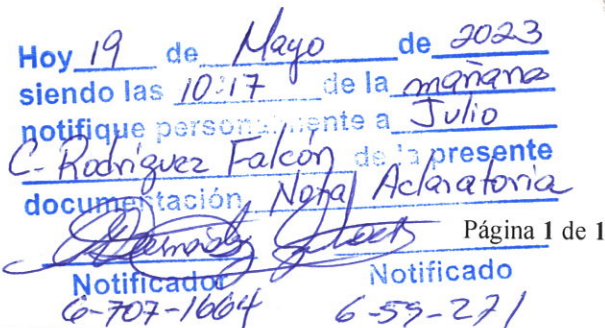 Hoy 19 de Mayo de 2023
siendo las 10:17 de la mañana
notifique personalmente a Julio
C. Rodríguez Falcón de la presente
documentación Nota Aclaratoria
Página 1 de 1
Notificador Notificado
6-707-1664 6-59-271